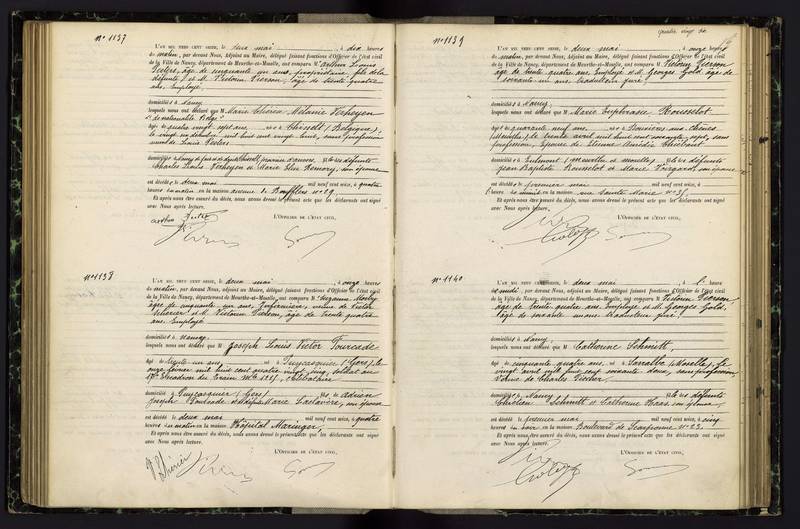 quatre vingt six
n° 1137
L'AN MIL NEUF CENT SEIZE, le deux mai, à dix heures
du matin, par devant Nous, Adjoint au Maire, délégué faisant fonctions d'Officier de l'état civil
de la Ville de Nancy, département de Meurthe-et-Moselle, ont comparu M. Arthur Louis
Peeters, âgé de cinquante un ans, propriétaire, fils de la
défunte et M. Victorin Pierson, âgé de trente quatre
ans, Employé
domiciliés à Nancy
lesquels nous ont déclaré que M. Marie Thérèse Mélanie Verheyen
de nationalité Belge
âgée de quatre vingt sept ans née à Thisselt (Belgique),
le vingt un décembre mil huit cent vingt huit, sans profession
veuve de Louis Peeters
domiciliée à Nancy
Charles Louis Verheyen et Marie Elise Remory, son épouse
est décédée le deux mai mil neuf cent seize, à quatre
heures du matin en la maison avenue de Boufflers n° 29.
Et après nous être assuré du décès, nous avons dressé le présent acte que les déclarants ont signé
avec Nous après lecture.
L'OFFICIER DE L'ÉTAT CIVIL,
n° 1138
L'AN MIL NEUF CENT SEIZE, le deux mai, à onze heures
du matin, par devant Nous, Adjoint au Maire, délégué faisant fonctions d'Officier de l'état civil
de la Ville de Nancy, département de Meurthe-et-Moselle, ont comparu M. Suzanne
âgée de cinquante un ans, Infirmière, veuve de Victor
et M. Victorin Pierson, âgé de trente quatre
ans, Employé
domiciliés à Nancy
lesquels nous ont déclaré que M. Joseph Louis Victor Fourcade
âgé de trente un ans, né à Puycasquier (Gers), le
onze février mil huit cent quatre vingt cinq, soldat au
Escadron du Train célibataire
domicilié à Puycasquier (Gers) fils de Adrien
Joseph Fourcade et Marie Laclavère, son épouse
est décédé le deux mai mil neuf cent seize, à quatre
heures du matin en l'hôpital Maringer,
Et après nous être assuré du décès, nous avons dressé le présent acte que les déclarants ont signé
avec Nous après lecture.
L'OFFICIER DE L'ÉTAT CIVIL,
n° 1139
L'AN MIL NEUF CENT SEIZE, le deux mai, à onze heures
du matin, par devant Nous, Adjoint au Maire, délégué faisant fonctions d'Officier de l'état civil
de la Ville de Nancy, département de Meurthe-et-Moselle, ont comparu M. Victorin Pierson
âgé de trente quatre ans, Employé et M. Georges Gold, âgé de
soixante un ans, traducteur juré
domiciliés à Nancy,
lesquels nous ont déclaré que M. Marie Euphrasie Rousselot
âgée de quarante neuf ans née à Rosières aux Salines
(Meurthe), le trente avril mil huit cent soixante sept, sans
profession, Epouse de Etienne Amédée Thiébaut
domiciliée à Pulnoy (Meurthe et Moselle), fille des défunts
Jean Baptiste Rousselot et Marie son épouse
est décédée le premier mai mil neuf cent seize, à
heures en la maison rue Sainte Marie n° 35.
Et après nous être assuré du décès, nous avons dressé le présent acte que les déclarants ont signé
avec Nous après lecture.
L'OFFICIER DE L'ÉTAT CIVIL,
n° 1140
L'AN MIL NEUF CENT SEIZE, le deux mai, à heures
midi, par devant Nous, adjoint au Maire, délégué faisant fonctions d'Officier de l'état civil
de la Ville de Nancy, département de Meurthe-et-Moselle, ont comparu M. Victorin Pierson
âgé de trente quatre ans, Employé et M. Georges Gold,
âgé de soixante un ans traducteur juré,
domiciliés à Nancy,
lesquels nous ont déclaré que M. Catherine Schmitt
âgée de cinquante quatre ans, née à Sarralbe (Moselle), le
vingt mil huit cent soixante deux, sans profession
Veuve de Charles Fischer
domiciliée à Nancy fille des défunts
Christian Schmitt et Catherine Haas, son épouse
est décédée le premier mai mil neuf cent seize, à cinq
heures du soir en la maison Boulevard de Scarponne n° 23.
Et après nous être assuré du décès, nous avons dressé le présent acte que les déclarants ont signé
avec Nous après lecture.
L'OFFICIER DE L'ÉTAT CIVIL,